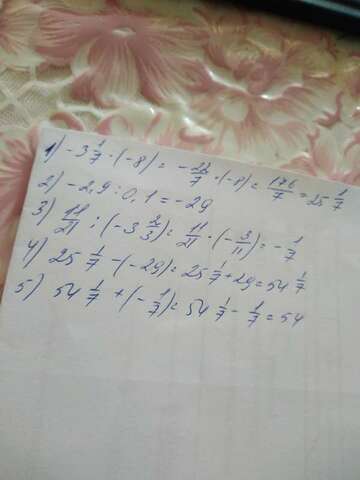 1) -3 1/7 · (-8) = - 22/7 · (-8) = 176/7 = 25 1/7
2) -2,9 : 0,1 = -29
3) 11/21 : (-3 2/3) = 11/21 · (-3/11) = -1/7
4) 25 1/7 - (-29) = 25 1/7 + 29 = 54 1/7
5) 54 1/7 + (-1/7) = 54 1/7 - 1/7 = 54